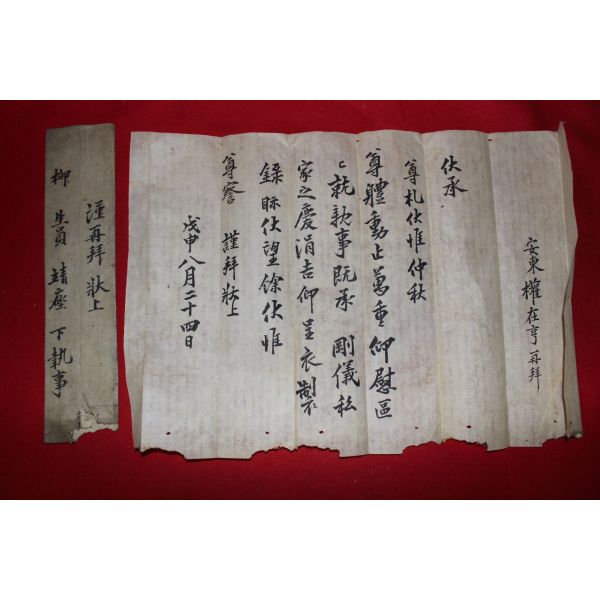 安東權在亨再拜
伏承
尊札伏惟仲秋
尊體動止萬重仰慰區
〻就執事旣承 剛儀私
家之慶涓吉仰呈衣製
錄眎伏望餘伏惟
尊詧 謹拜狀上
戊申八月二十四日
謹再拜 狀上
柳 生員 靖座 下執事